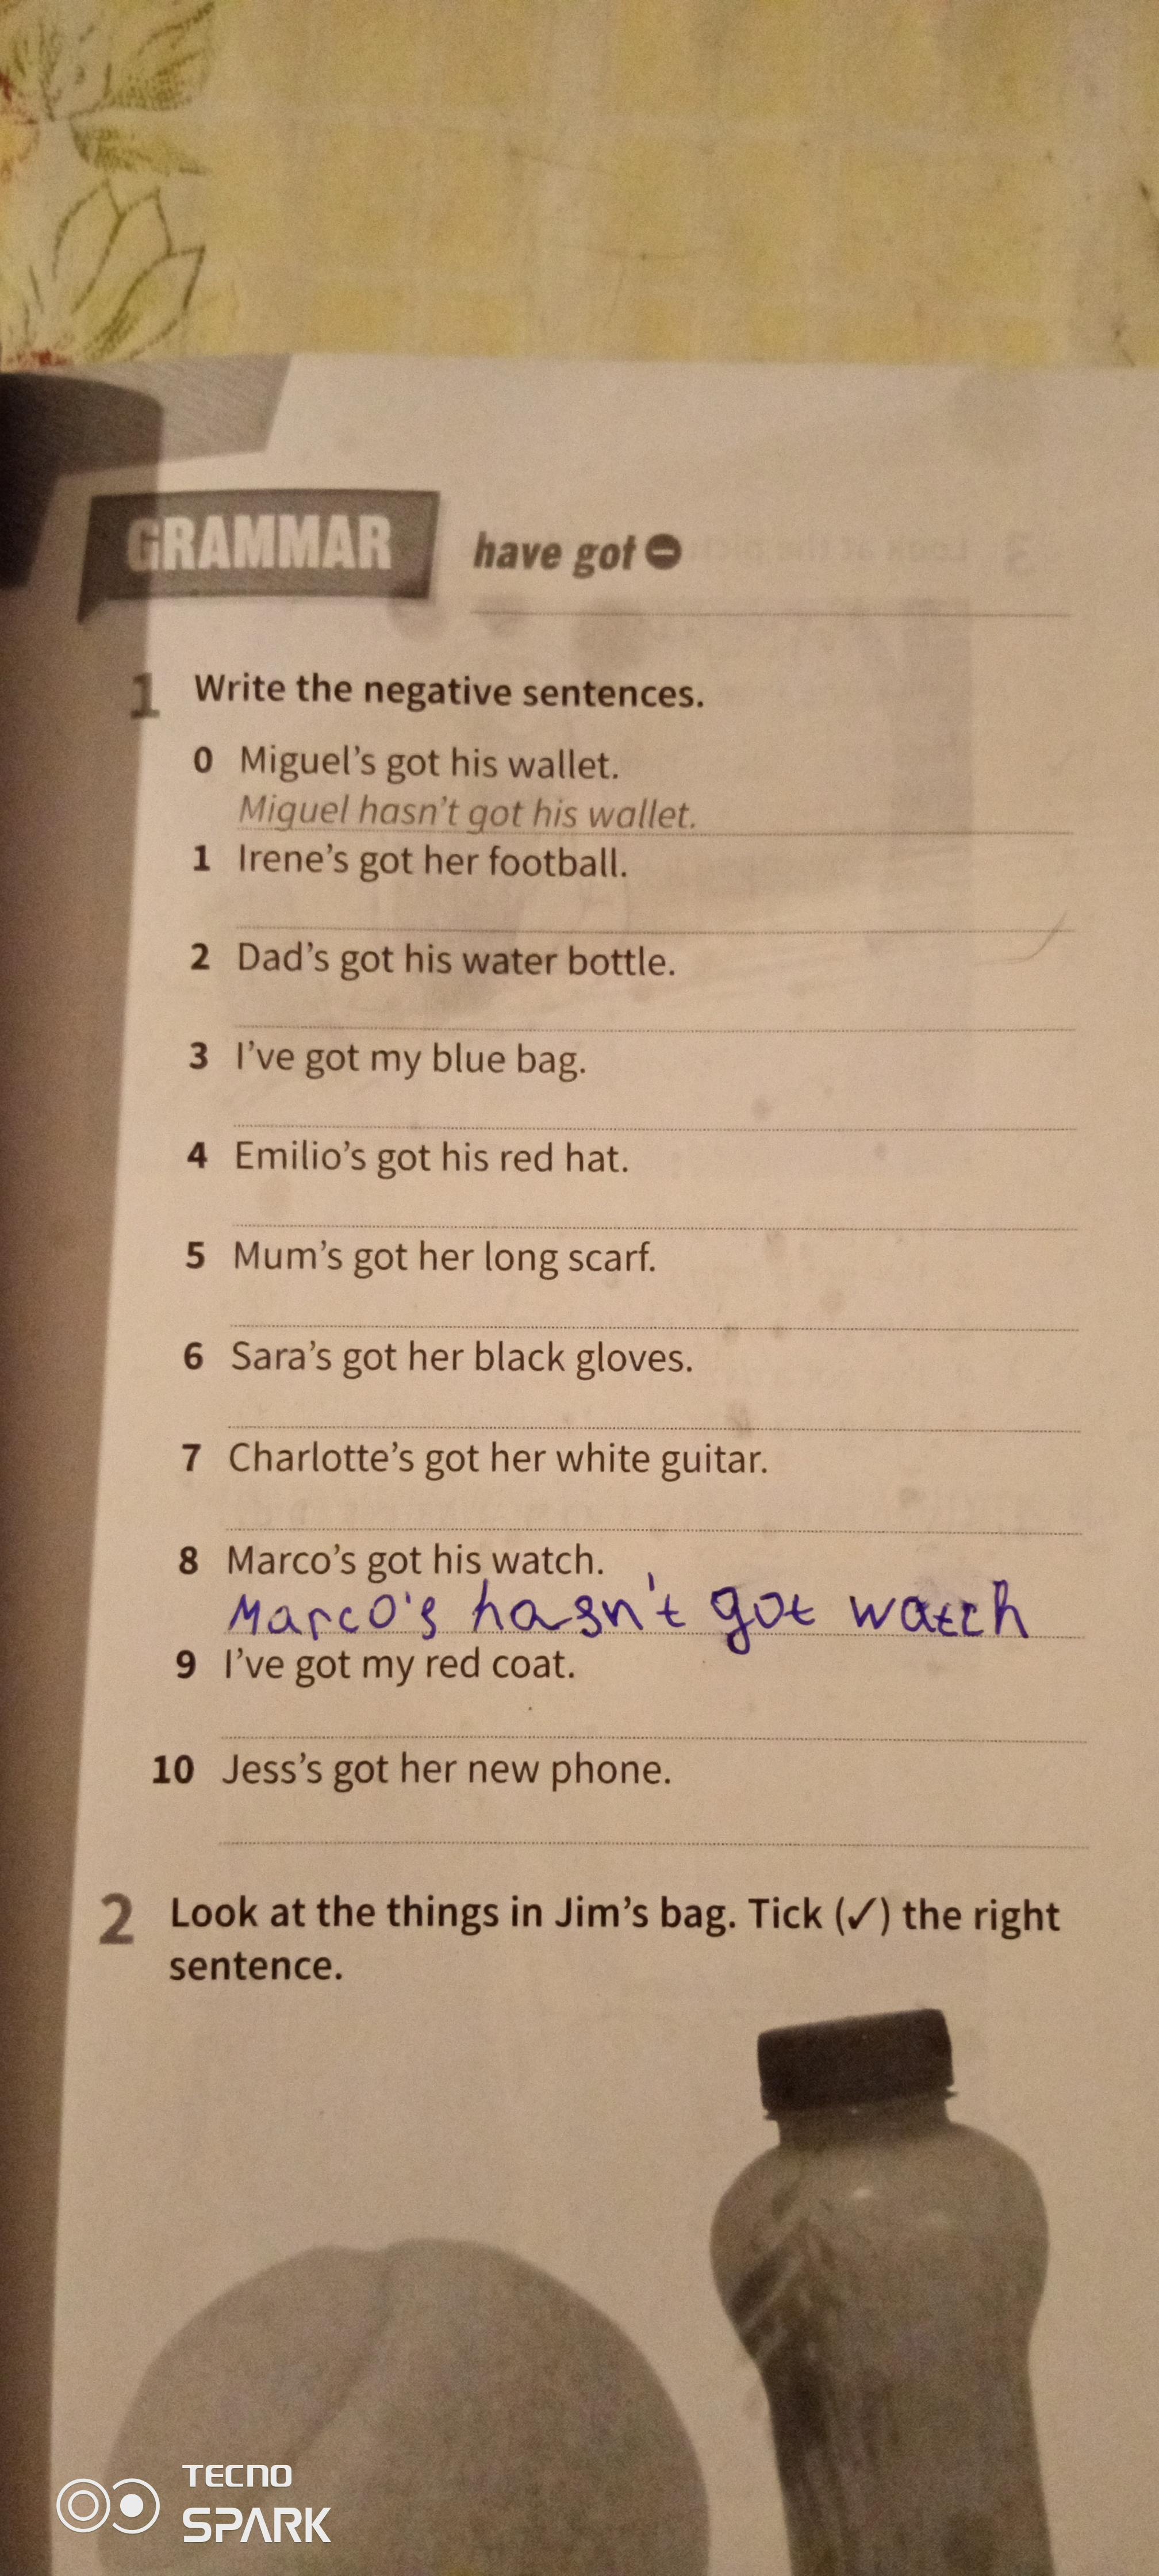 GRAMMAR
have got
1 Write the negative sentences.
0 Miguel's got his wallet.
Miguel hasn't got his wallet.
1 Irene's got her football.
2 Dad's got his water bottle.
3 I've got my blue bag.
4 Emilio's got his red hat.
5 Mum's got her long scarf.
6 Sara's got her black gloves.
7 Charlotte's got her white guitar.
8 Marco's got his watch.
Marco's hasn't got watch
9 I've got my red coat.
10 Jess's got her new phone.
2 Look at the things in Jim's bag. Tick (✓) the right
sentence.
TECNO
SPARK